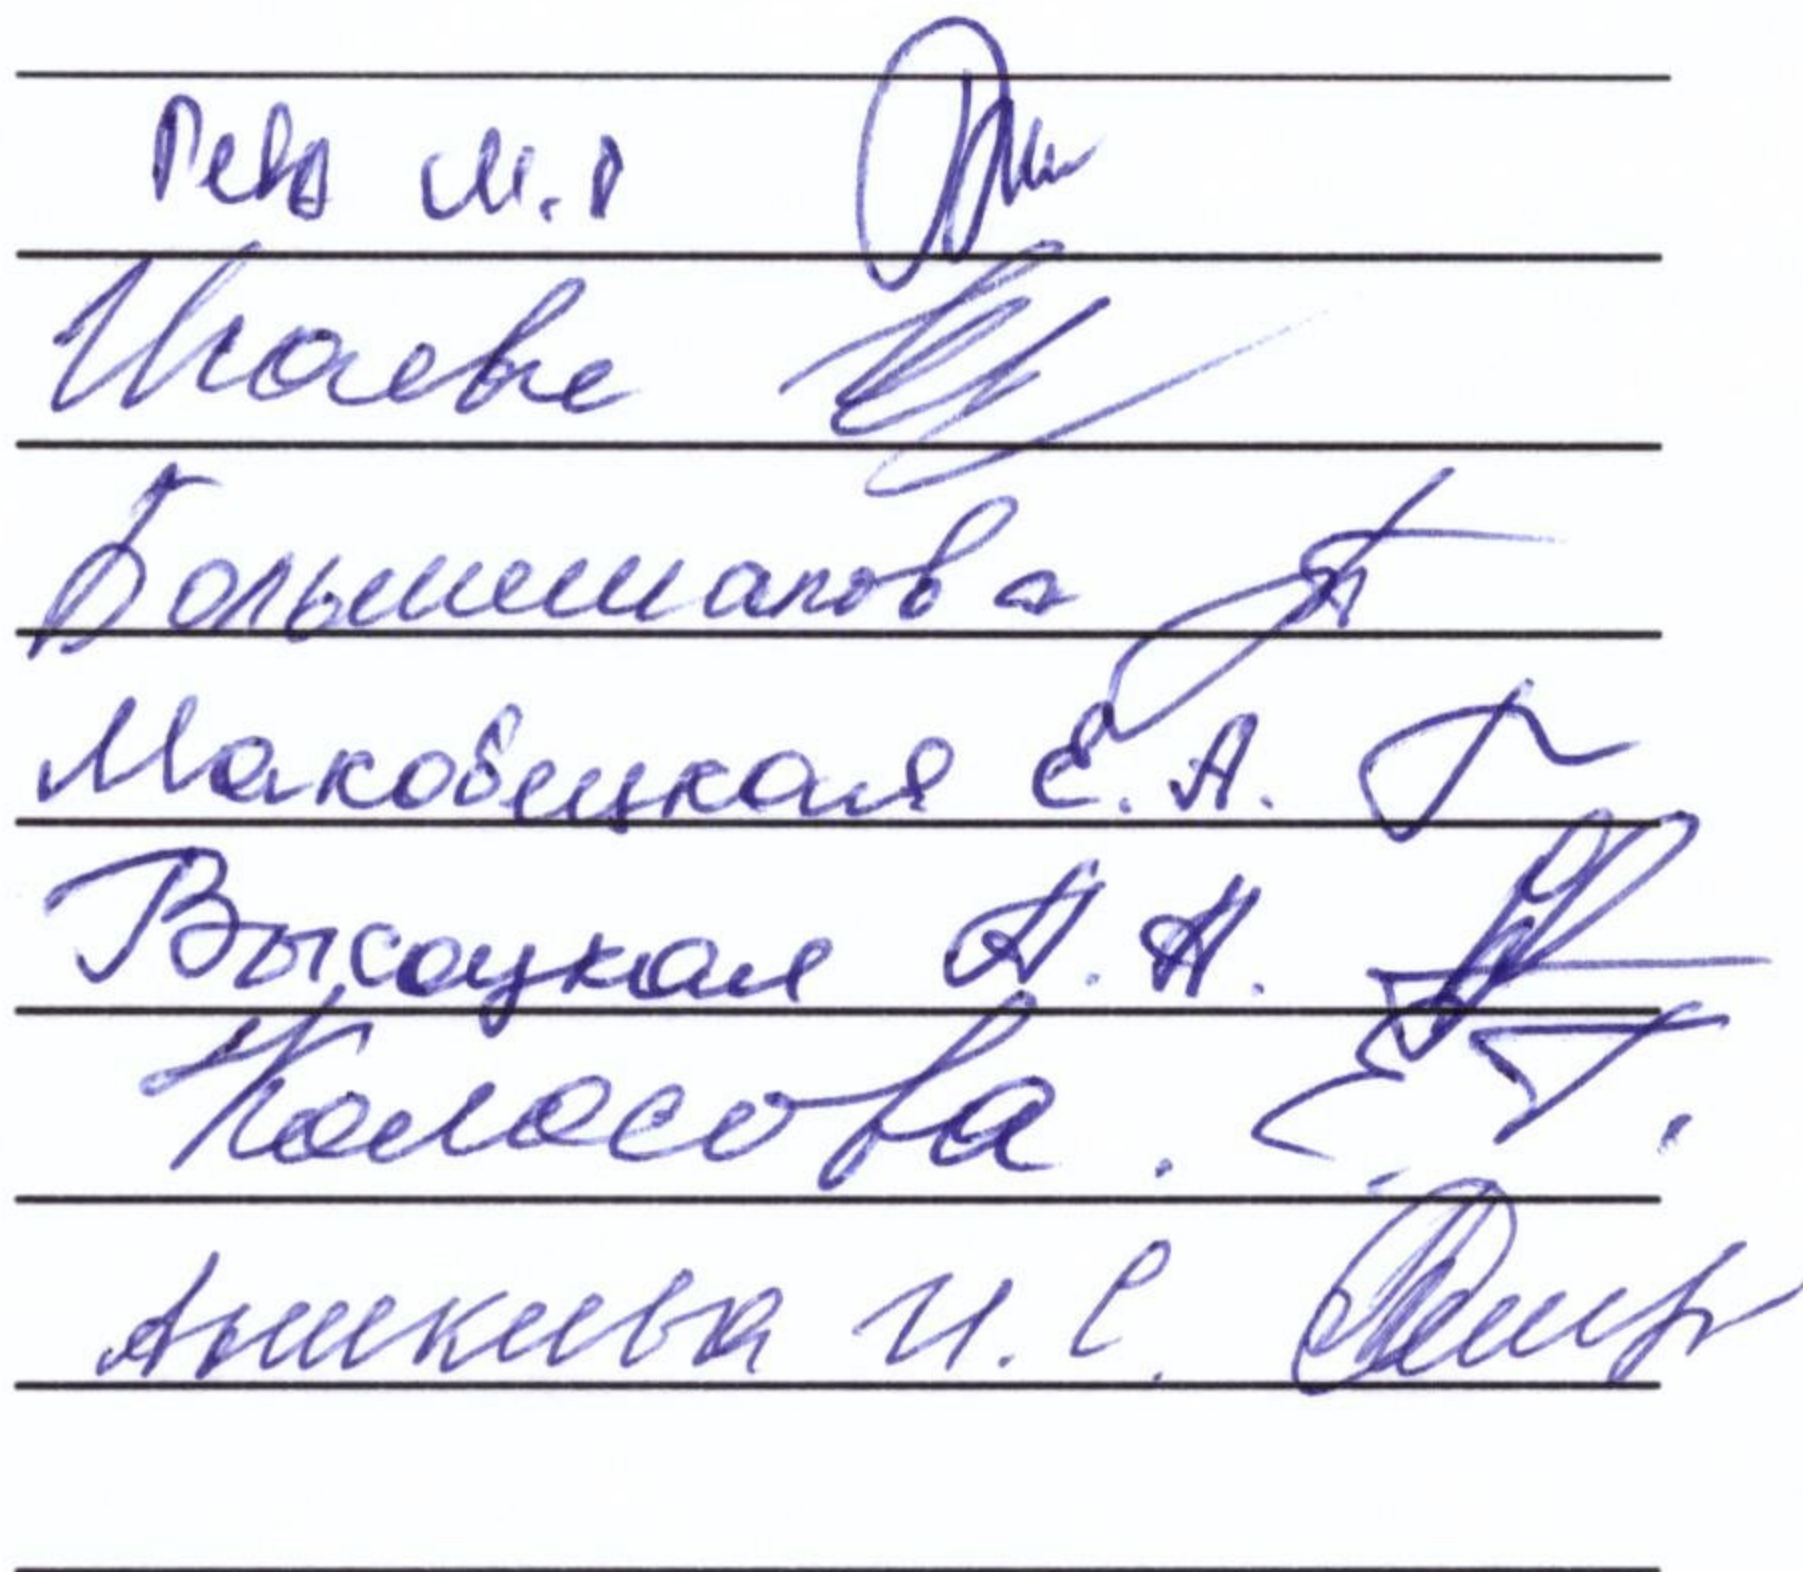 Рева М.Г
Исаева
Большешапова
Маковецкая Е. А.
Высоцкая А. Н.
Колосова. Е.Г.
Аникиева И. С.